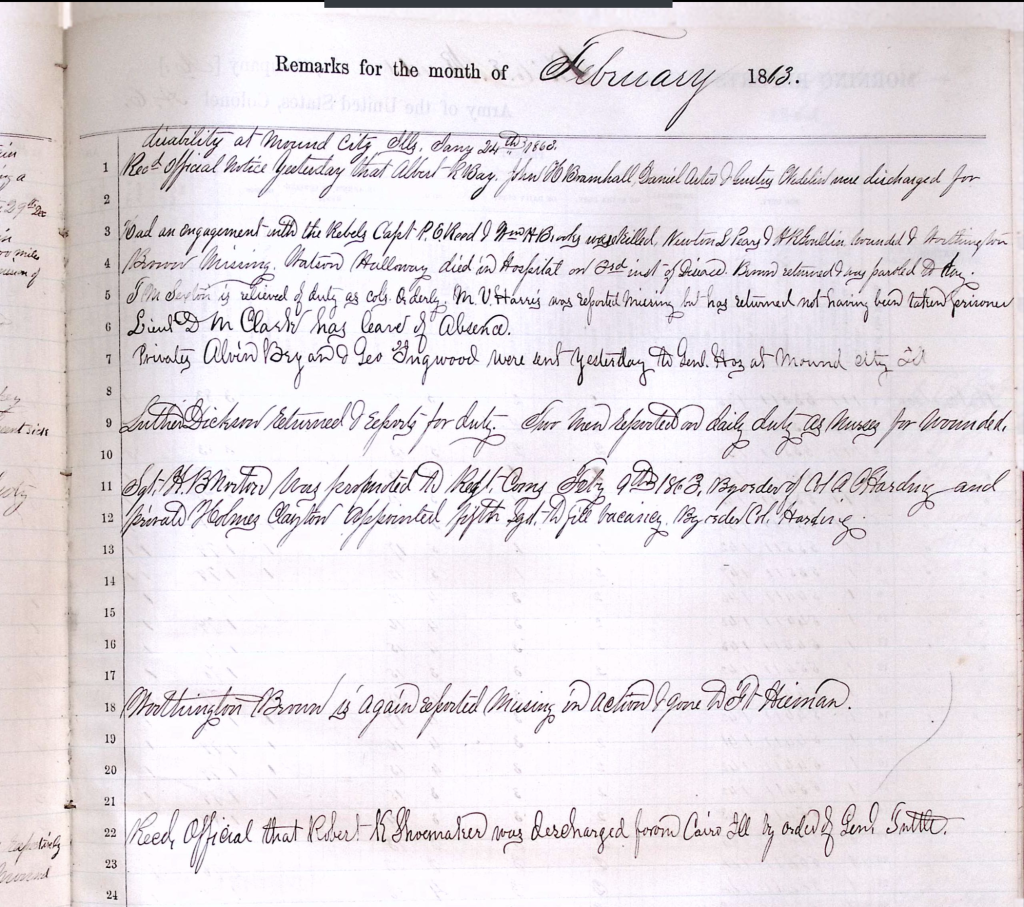 Remarks for the month of February 1863.
disability at Mound City Ills. Jany 24th 1863.
1 Recd Official Notice Yesterday that Albert K Bay. John H Bramhall, Daniel were discharged for
2
3 Had an engagement with the Rebels Capt P. E Reed & Wm H. Brooks was killed, Newton L wounded & Worthington
4 Brown Missing. Watson Hulloway died in Hospital on 3rd inst of Disease. Brown returned & was paroled to day.
5 J M Sexton is relieved of duty as cols. Orderly. M. V. Harris was reported missing but has returned not having been taken prisoner
6 Lieut D M Clark has leave of Absence.
7 Privates Alvin Bry and Geo Ingwood were sent yesterday to Genl. Hos at Mound city Ill
8
9 Luther Dickson returned & reports for duty. Two men reported on daily duty as Nurses for wounded.
10
11 Sgt. H. B Norton was promoted to Regt. Comy Feby 9th 1863, By order of Col A C Harding and
12 private Holmes Clayton appointed fifth Sgt. to fill vacancy. By order Col. Harding.
13
14
15
16
17
18 Worthington Brown is again reported Missing in action & gone to Ft Hieman.
19
20
21
22 Recd, Official that Robert K Shoemaker was descharged from Cairo Ill by order of Genl Tuttle.
23
24
29th Dec